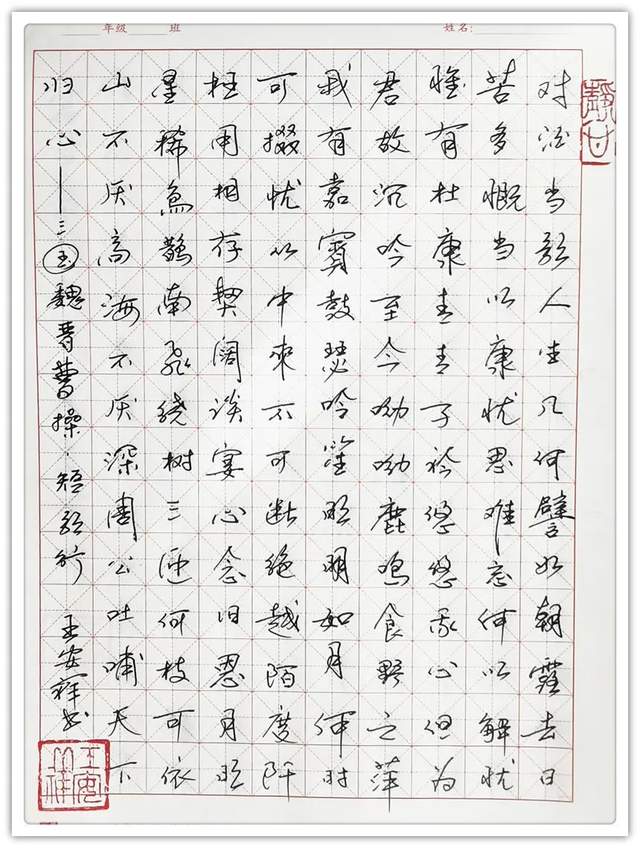 年级 班 姓名:
对酒当歌人生几何譬如朝露去日
苦多慨当以康忧思难忘何以解忧
惟有杜康青青子衿悠悠我心但为
君故沉吟至今呦呦鹿鸣食野之萍
我有嘉賓鼓瑟吹笙明明如月何时
可掇忧从中來不可断绝越陌度阡
枉用相存契阔谈宴心念旧恩月明
星稀乌鹊南飞绕树三匝何枝可依
山不厌高海不厌深周公吐哺天下
归心——三国魏晋曹操·短歌行 王安祥书